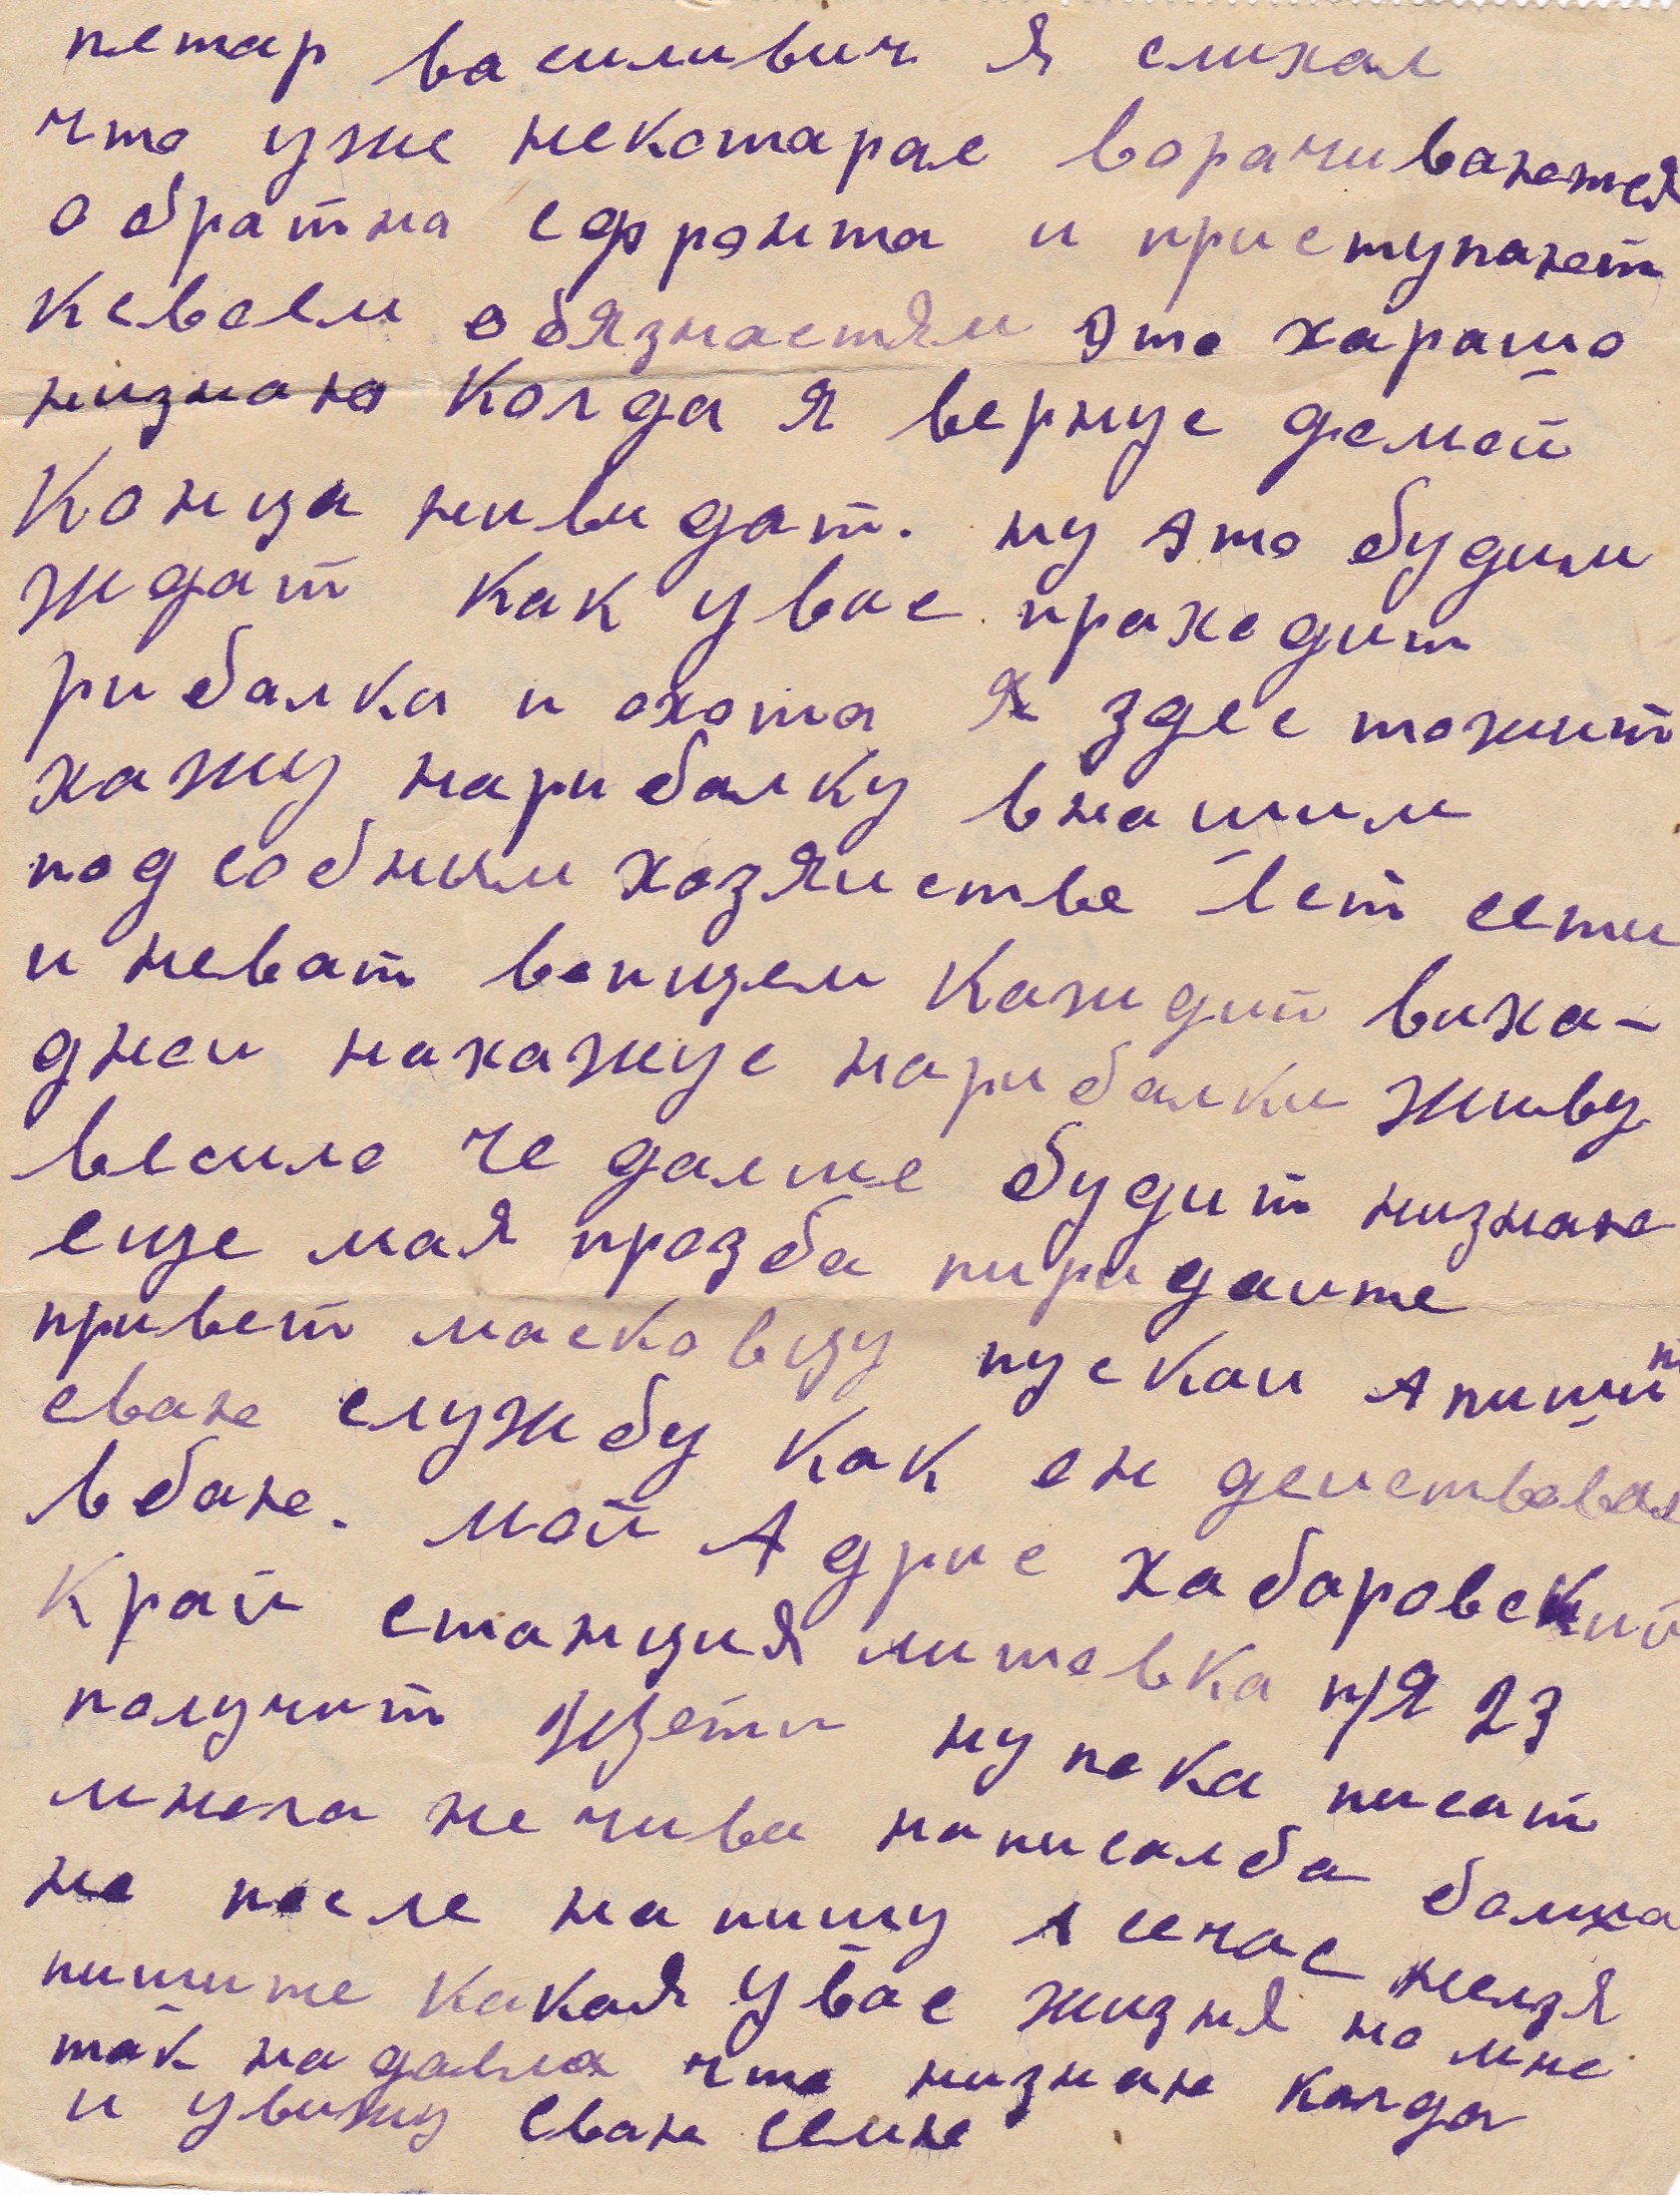 петар василивич я слихал
что уже некотарае ворачиваютея
обратна сфронта и приступают
ксвоем обязнастям Это харашо
низнаю Когда я вернус домой
Конца нивидат. ну это будим
ждат как увас праходит
рибалка и охота я здес тожит
хажу нарибалку внашим
подсобным хозяистве Ест сети
и неват вопщем Каждит виха-
днои нахажус нарибалки живу
весило Че далше будит низнаю
еще мая прозба пиридаите
привет масковцу пускаи Апишит
сваю службу как он деиствовал
вбаню. мой Адрис хабаровский
Край станция литовка п/я 23
получит дети ну пока писат
многа нечива написалба болша
но после напишу А сечас нелзя
пишите какая увас жизня но мне
так надаела что низнаю когда
и увижу сваю семю